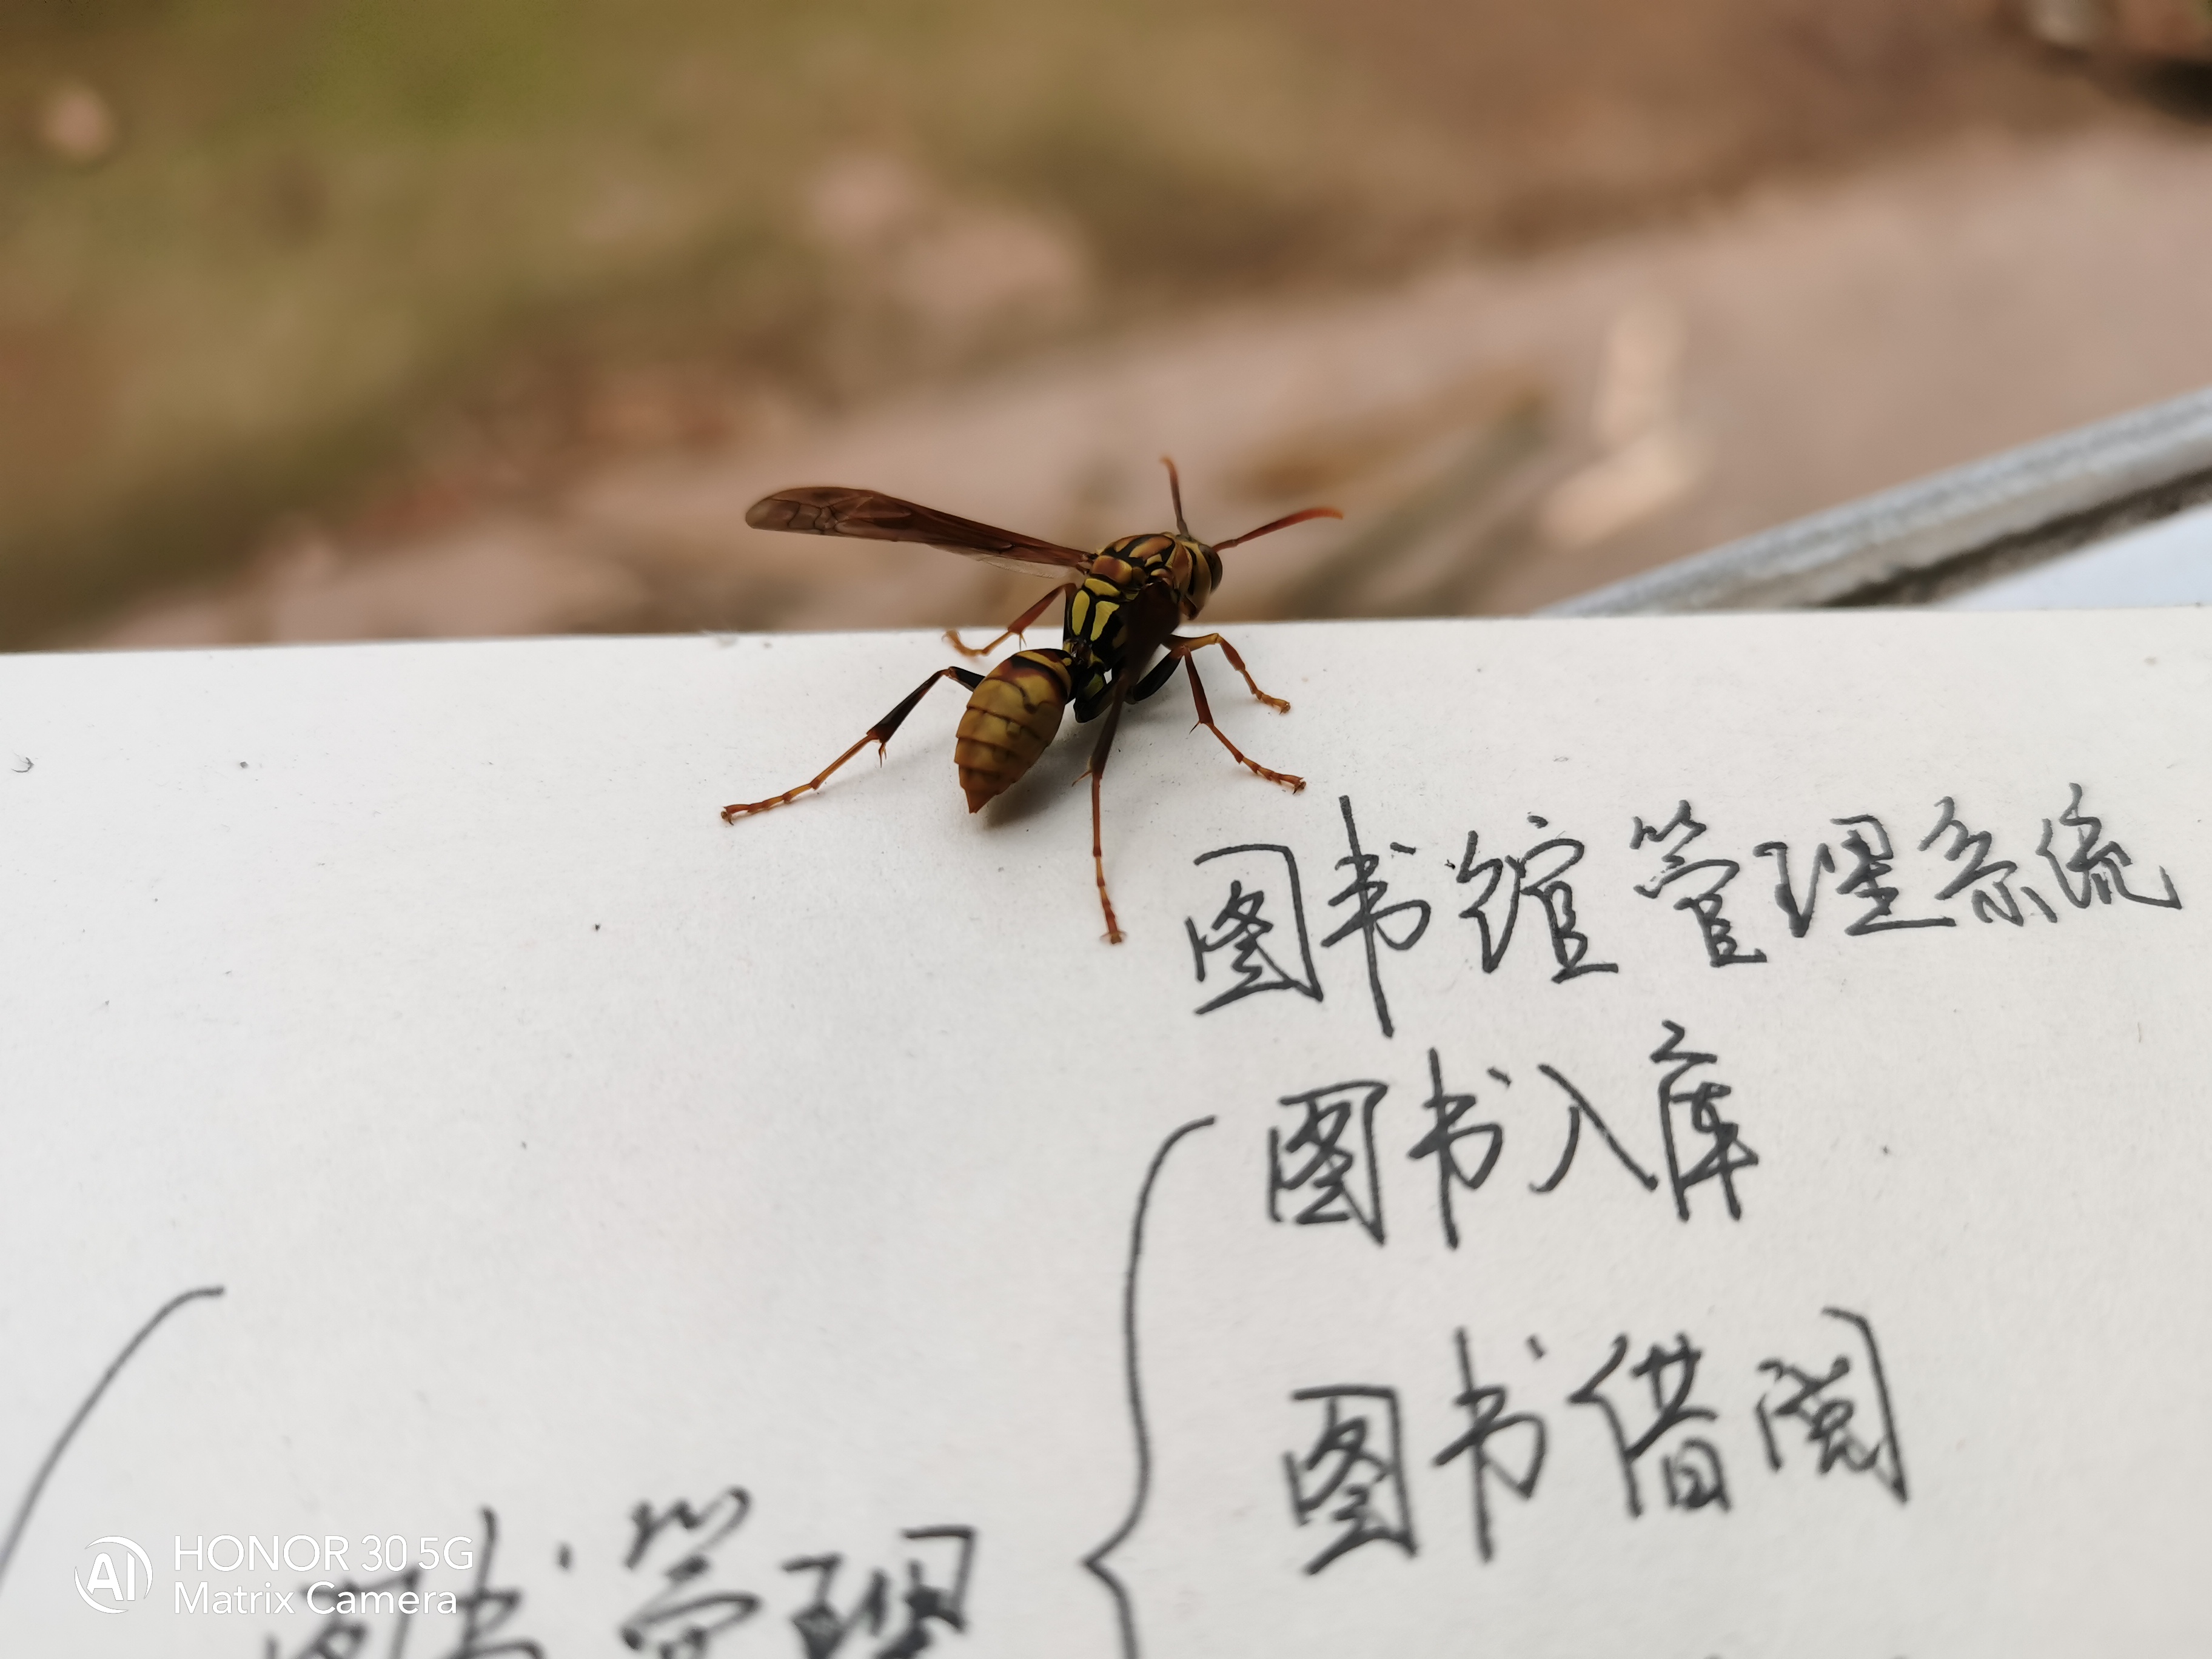 图书馆管理系统
图书入库
图书借阅
图书管理
HONOR 30 5G
Matrix Camera
AI